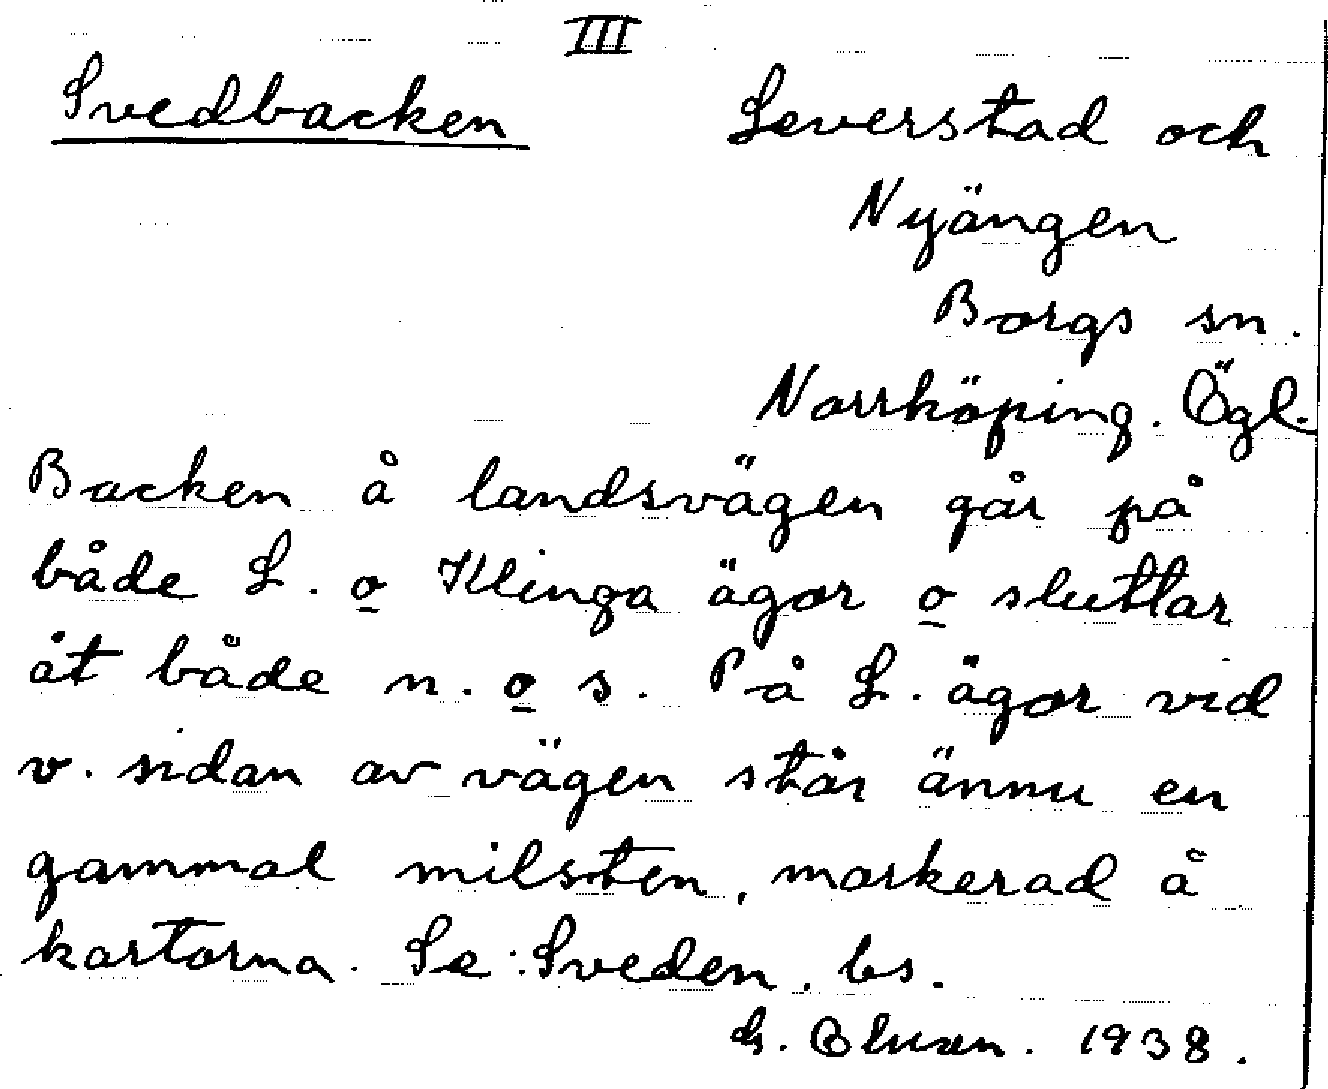 III
Svedbacken Leverstad och
Nyängen
Borgs sn.
Norrköping. Ögl.
Backen å landsvägen går på
både L. o Klinga ägor o sluttar
åt både n. o s. På L. ägor vid
v. sidan av vägen står ännu en
gammal milsten, markerad å
kartorna. Se: Sveden, bs.
1938.